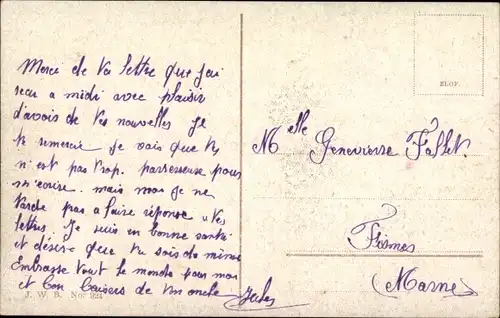 Merci de ta lettre que j'ai
recu a midi avec plaisir
d'avois de tes nouvelles Je
te remercie je vois que tu
n'est pas trop parresseuse pour
m'ecrire. mais moi je ne
tarde pas a faire réponse a tes
lettres. Je suis en bonne santé
et désire que tu sois de même
Embrasse tout le monde pour moi
et bon baisers de ton oncle
Jules
J. W. B. No. 221
ELOF.
Melle Genevieve Fallet
Fismes
(Marne)